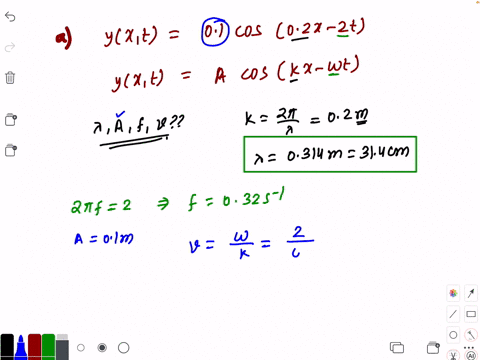 a) y(x,t) = 0.1 cos (0.2x-2t)
y(x,t) = A cos (kx-ωt)
λ, A, f, v??
k = 2π/λ = 0.2 m
λ = 0.314 m = 31.4 cm
2πf = 2 ⇒ f = 0.32 s⁻¹
A = 0.1m
v = ω/k = 2/